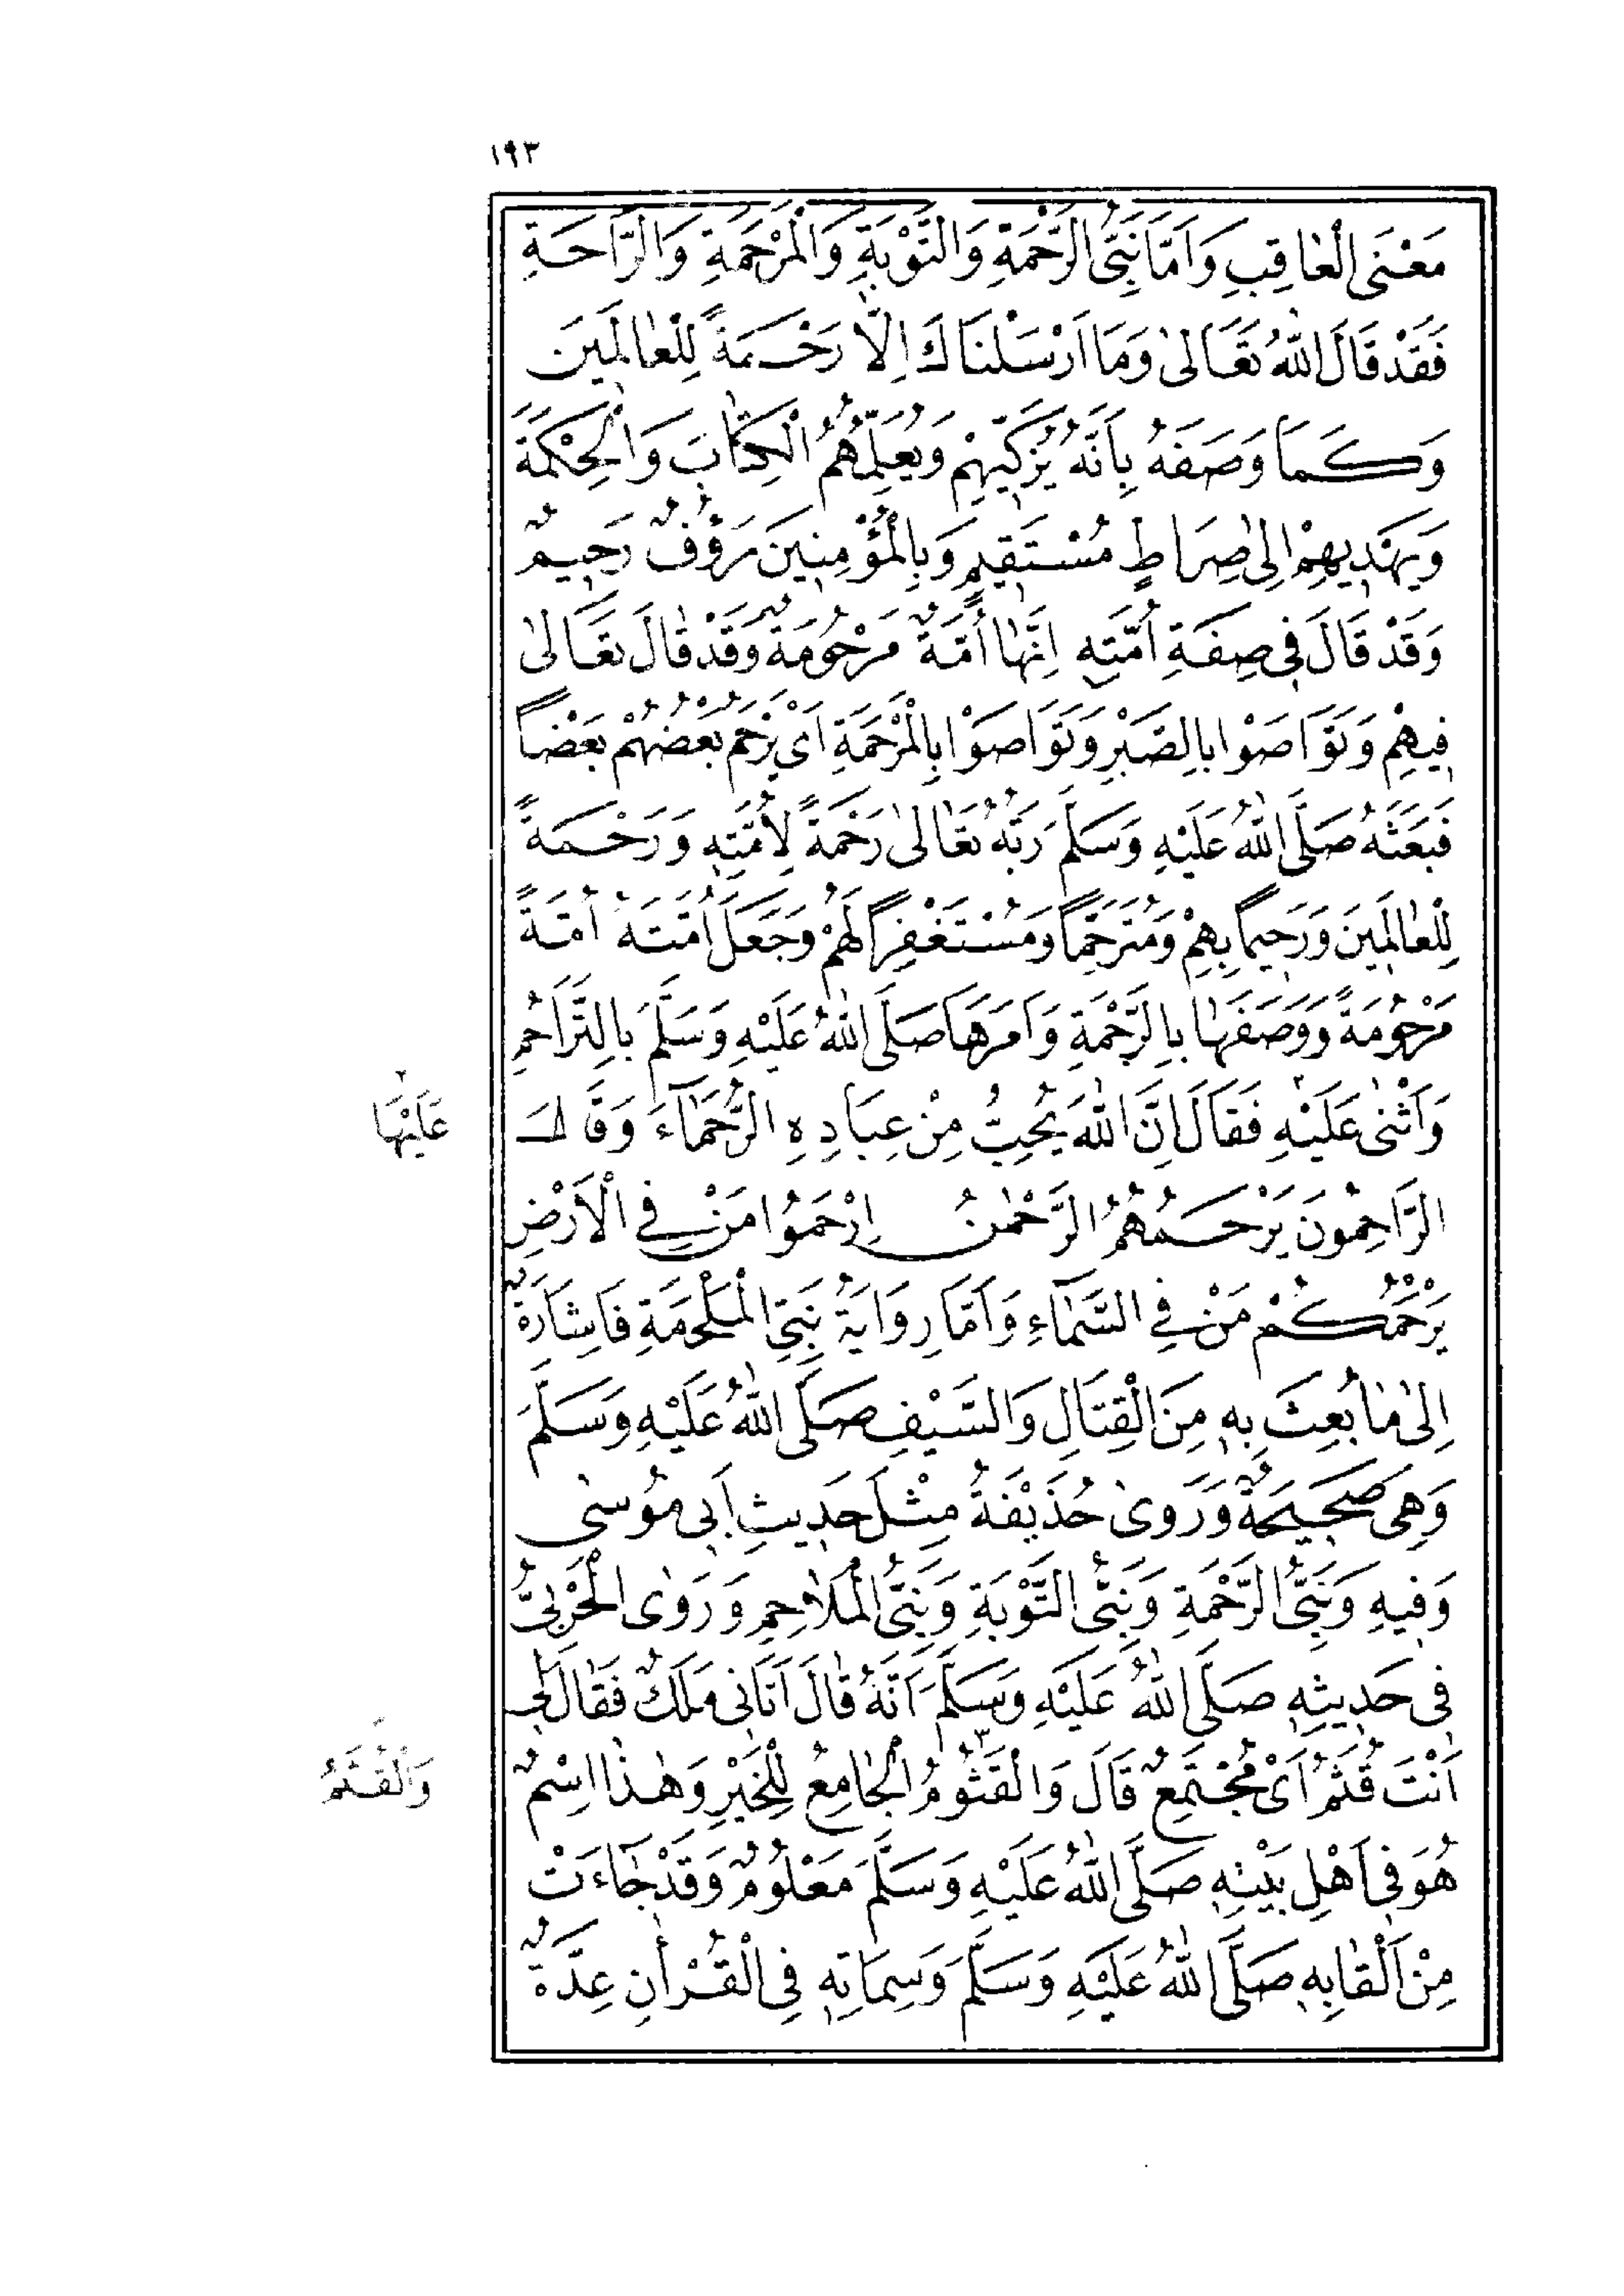 ١٩٣
مَعْنَى الْعَاقِبِ وَاَمَّا نَبِيُّ الرَّحْمَةِ وَالتَّوْبَةِ وَالْمَرْحَمَةِ وَالرَّاحَةِ
فَقَدْ قَالَ اللّٰهُ تَعَالٰى وَمَا اَرْسَلْنَاكَ اِلَّا رَحْمَةً لِلْعَالَمِينَ
وَكَمَا وَصَفَهُ بِاَنَّهُ يُزَكِّيهِمْ وَيُعَلِّمُهُمُ الْكِتَابَ وَالْحِكْمَةَ
وَيَهْدِيهِمْ اِلٰى صِرَاطٍ مُسْتَقِيمٍ وَبِالْمُؤْمِنِينَ رَؤُفٌ رَحِيمٌ
وَقَدْ قَالَ فِي صِفَةِ اُمَّتِهِ اِنَّهَا اُمَّةٌ مَرْحُومَةٌ وَقَدْ قَالَ تَعَالٰى
فِيهِمْ وَتَوَاصَوْا بِالصَّبْرِ وَتَوَاصَوْا بِالْمَرْحَمَةِ اَيْ يَرْحَمُ بَعْضُهُمْ بَعْضًا
فَبَعَثَهُ صَلَّى اللّٰهُ عَلَيْهِ وَسَلَّمَ رَبُّهُ تَعَالٰى رَحْمَةً لِاُمَّتِهِ وَرَحْمَةً
لِلْعَالَمِينَ وَرَحِيمًا بِهِمْ وَمُتَرَحِّمًا وَمُسْتَغْفِرًا لَهُمْ وَجَعَلَ اُمَّتَهُ اُمَّةً
مَرْحُومَةً وَوَصَفَهَا بِالرَّحْمَةِ وَاَمَرَهَا صَلَّى اللّٰهُ عَلَيْهِ وَسَلَّمَ بِالتَّرَاحُمِ
وَاَثْنٰى عَلَيْهِ فَقَالَ اِنَّ اللّٰهَ يُحِبُّ مِنْ عِبَادِهِ الرُّحَمَآءَ وَقَالَ
عَلَيْهَا
الرَّاحِمُونَ يَرْحَمُهُمُ الرَّحْمٰنُ اِرْحَمُوا مَنْ فِي الْاَرْضِ
يَرْحَمْكُمْ مَنْ فِي السَّمَآءِ وَاَمَّا رِوَايَةُ نَبِيِّ الْمَلْحَمَةِ فَاِشَارَةٌ
اِلٰى مَا بُعِثَ بِهِ مِنَ الْقِتَالِ وَالسَّيْفِ صَلَّى اللّٰهُ عَلَيْهِ وَسَلَّمَ
وَهِيَ صَحِيحَةٌ وَرَوٰى حُذَيْفَةُ مِثْلَ حَدِيثِ اَبِي مُوسٰى
وَفِيهِ وَنَبِيُّ الرَّحْمَةِ وَنَبِيُّ التَّوْبَةِ وَنَبِيُّ الْمَلَاحِمِ وَرَوَى الْحَرْبِيُّ
فِي حَدِيثِهِ صَلَّى اللّٰهُ عَلَيْهِ وَسَلَّمَ اَنَّهُ قَالَ اَتَانِي مَلَكٌ فَقَالَ لِي
اَنْتَ قُثَمُ اَيْ مُجْتَمِعٌ قَالَ وَالْقَثُومُ الْجَامِعُ لِلْخَيْرِ وَهٰذَا اِسْمٌ
وَالْقُثَمُ
هُوَ فِي اَهْلِ بَيْتِهِ صَلَّى اللّٰهُ عَلَيْهِ وَسَلَّمَ مَعْلُومٌ وَقَدْ جَاءَتْ
مِنْ اَلْقَابِهِ صَلَّى اللّٰهُ عَلَيْهِ وَسَلَّمَ وَسِمَاتِهِ فِي الْقُرْاٰنِ عِدَّةٌ